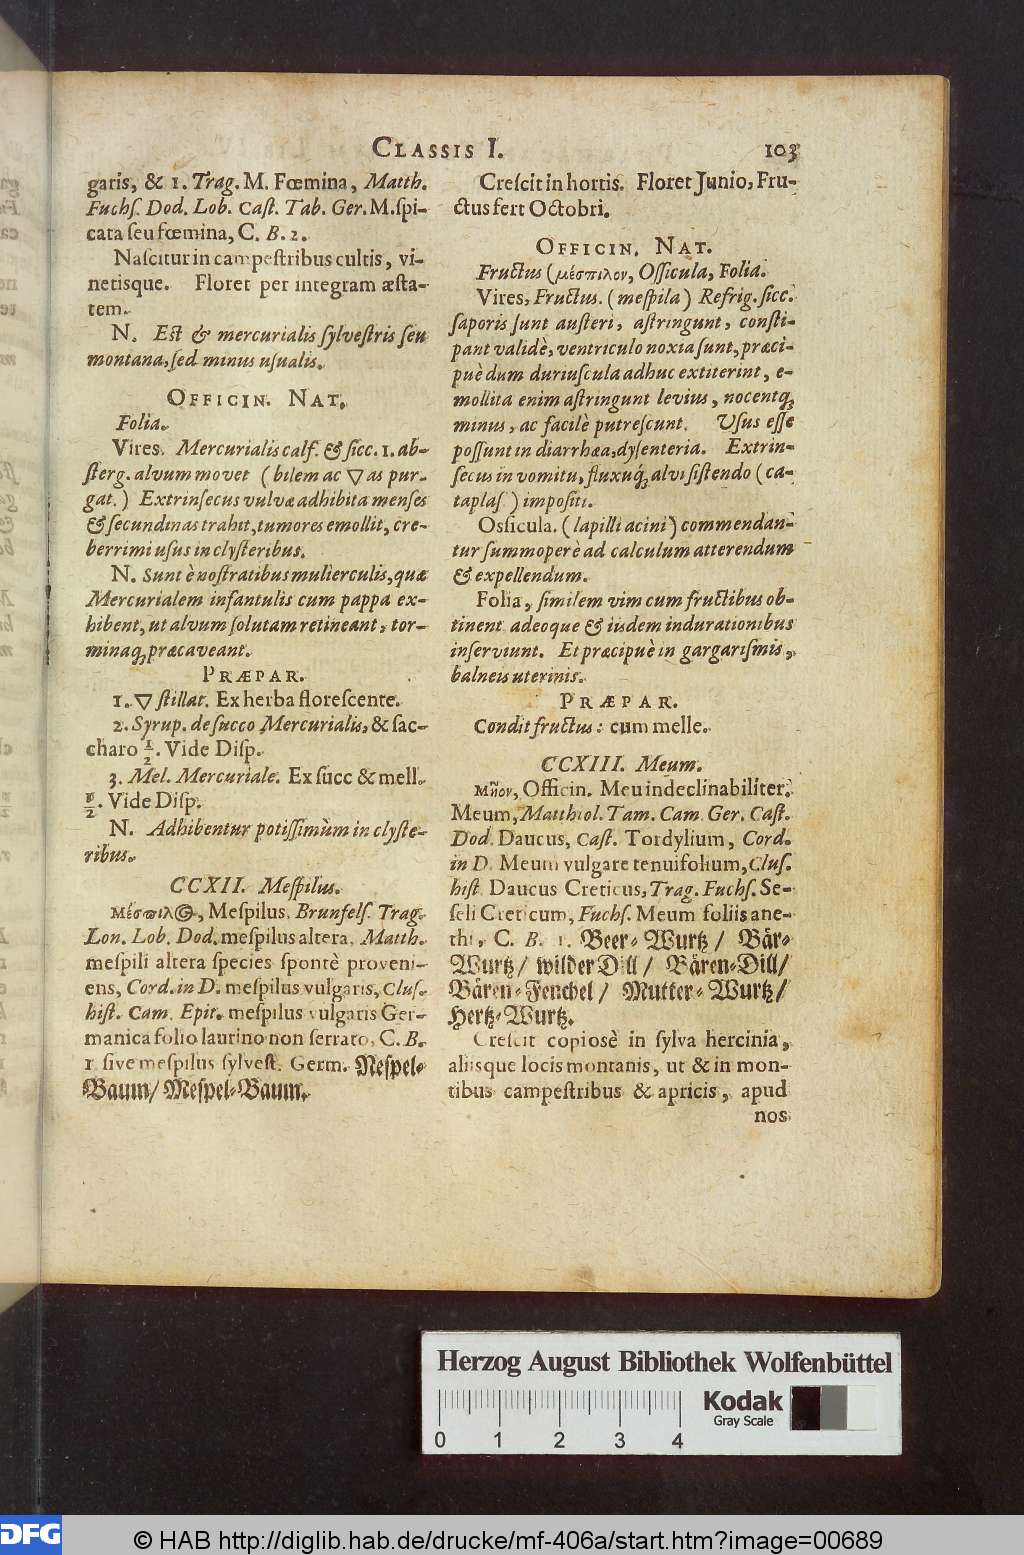 CLASSIS I. 103
garis, & 1. Trag. M. Fœmina, Matth.
Fuchſ. Dod. Lob. Caſt. Tab. Ger. M. ſpi-
cata ſeu fœmina, C. B. 2.
Naſcitur in campeſtribus cultis, vi-
netisque. Floret per integram æſta-
tem.
N. Eſt & mercurialis ſylveſtris ſeu
montana, ſed minus uſualis.
OFFICIN. NAT.
Folia.
Vires. Mercurialis calf. & ſicc. 1. ab-
ſterg. alvum movet (bilem ac ▽as pur-
gat.) Extrinſecus vulvæ adhibita menſes
& ſecundinas trahit, tumores emollit, cre-
berrimi uſus in clyſteribus.
N. Sunt è noſtratibus mulierculis, quæ
Mercurialem infantulis cum pappa ex-
hibent, ut alvum ſolutam retineant, tor-
minaq; præcaveant.
PRÆPAR.
1. ▽ ſtillat. Ex herba floreſcente.
2. Syrup. de ſucco Mercurialis, & ſac-
charo 1/2. Vide Diſp.
3. Mel. Mercuriale. Ex ſucc & mell.
p/2. Vide Diſp.
N. Adhibentur potiſſimùm in clyſte-
ribus.
CCXII. Meſpilus.
Μέσπιλ⊙, Meſpilus. Brunfelſ. Trag.
Lon. Lob. Dod. meſpilus altera. Matth.
meſpili altera ſpecies ſpontè proveni-
ens, Cord. in D. meſpilus vulgaris, Cluſ.
hiſt. Cam. Epit. meſpilus vulgaris Ger-
manica folio laurino non ſerrato, C. B.
1 ſive meſpilus ſylveſt. Germ. Neſpel-
Baum/ Meſpel-Baum.
Creſcit in hortis. Floret Junio, Fru-
ctus fert Octobri.
OFFICIN. NAT.
Fructus (μέσπιλον, Oſſicula, Folia.
Vires, Fructus. (meſpila) Refrig. ſicc.
ſaporis ſunt auſteri, aſtringunt, conſti-
pant validè, ventriculo noxia ſunt, præci-
puè dum duriuſcula adhuc extiterint, e-
mollita enim aſtringunt levius, nocentq;
minus, ac facilè putreſcunt. Uſus eſſe
poſſunt in diarrhœa, dyſenteria. Extrin-
ſecus in vomitu, fluxuq; alvi ſiſtendo (ca-
taplaſ) impoſiti.
Osſicula. (lapilli acini) commendan-
tur ſummoperè ad calculum atterendum
& expellendum.
Folia, ſimilem vim cum fructibus ob-
tinent adeoque & iisdem indurationibus
inſerviunt. Et præcipuè in gargariſmis,
balneis uterinis.
PRÆPAR.
Condit fructus: cum melle.
CCXIII. Meum.
Μῆον, Officin. Meu indeclinabiliter.
Meum, Matthiol. Tam. Cam. Ger. Caſt.
Dod. Daucus, Caſt. Tordylium, Cord.
in D. Meum vulgare tenuifolium, Cluſ.
hiſt Daucus Creticus, Trag. Fuchſ. Se-
ſeli Creticum, Fuchſ. Meum foliis ane-
thi, C. B. 1. Beer-Wurtz/ Bär-
Wurtz/ wilder Dill/ Bären-Dill/
Bären-Fenchel/ Mutter-Wurtz/
Hertz-Wurtz.
Creſcit copiosè in ſylva hercinia,
aliisque locis montanis, ut & in mon-
tibus campeſtribus & apricis, apud
nos
Herzog August Bibliothek Wolfenbüttel
Kodak
Gray Scale
0 1 2 3 4
DFG
© HAB http://diglib.hab.de/drucke/mf-406a/start.htm?image=00689